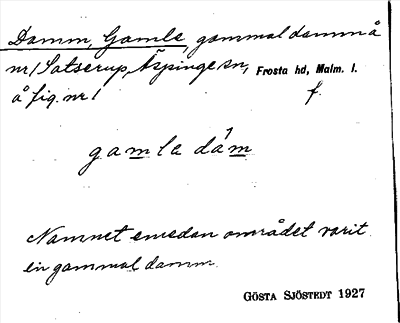 Damm, Gamla, gammal damm å
nr 1 Satserup, Äspinge sn, Frosta hd, Malm. l.
å fig. nr 1 f.
gamla dám
Namnet emedan området varit
en gammal damm.
GÖSTA SJÖSTEDT 1927